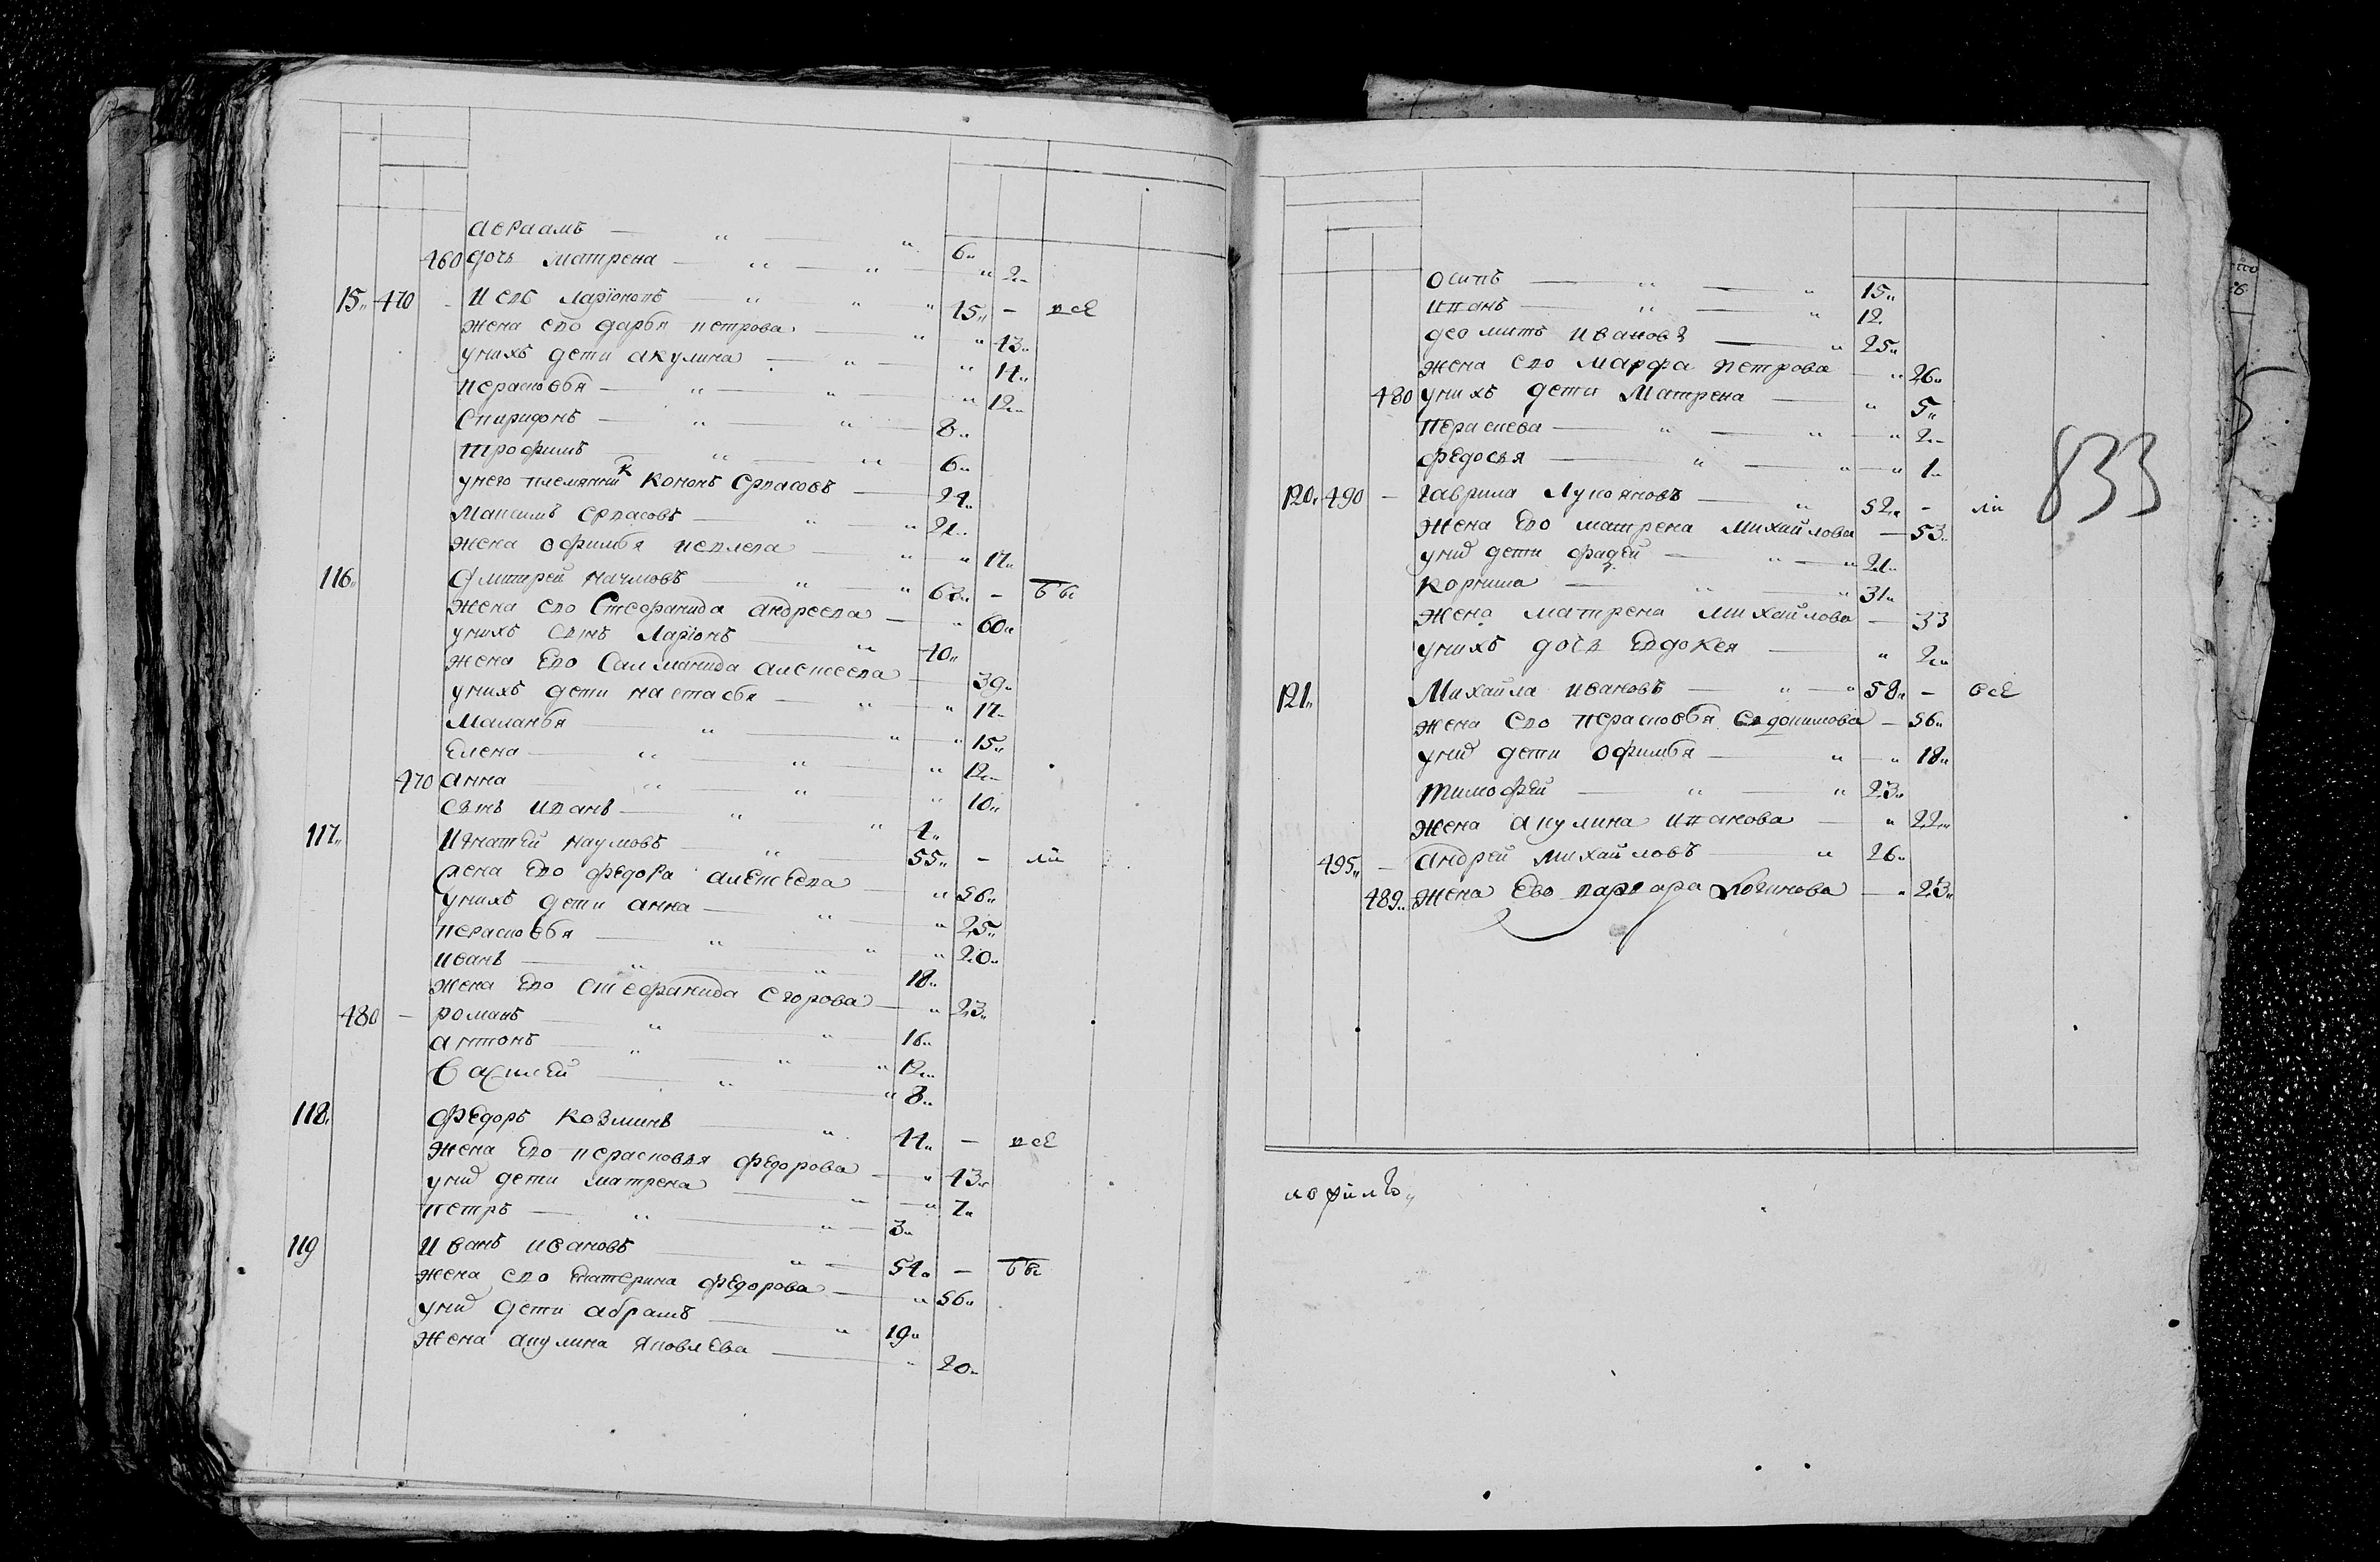 авраамъ 6
460 дочь матрена 2
15 470 Иевъ ларїоновъ 45 - всѣ
жена ево дарья петрова 43
унихъ дети акулина 14
перасковья 12
Спиридонъ 8
трофимъ 6
унего племянникъ кононъ Савасовъ 24
Максимъ Савасовъ 21
жена офимья 17
116 Дмитрей наумовъ 62 -
жена ево Стефанида андреева 60
унихъ сынъ Ларїонъ 40
жена ево Саламанида алексеева 39
унихъ дети настасья 17
Маланья 15
Елена 12
470 анна 10
Сынъ иванъ 4
117 Игнатей наумовъ 55 -
жена ево федора алексеева 56
унихъ дети анна 25
перасковья 20
иванъ 18
жена ево стефанида егорова 23
480 - романъ 16
антонъ 12
Василей 8
118 федоръ козминъ 44 - всѣ
жена ево перасковья федорова 43
унид дети матрена 7
петръ 3
119 Иванъ ивановъ 54 -
жена ево катерина федорова 56
унид дети абрамъ 19
жена акулина яковлева 20
осипъ 15
иванъ 12
ивановъ 25
жена ево марфа петрова 26
480 унихъ дети Матрена 5
Пераскева 2
федосья 1
120 490 - гаврила Лукояновъ 52 -
жена ево матрена михайлова 53
унид дети фадей 21
корнила 31
жена матрена михайлова 33
унихъ дочь евдокея 2
121 Михайла ивановъ 58 - всѣ
жена ево перасковья Евдокимова 56
унид дети офимья 18
тимофей 23
жена акулина иванова 22
495 - андрей михайловъ 26
489 жена ево варвара логинова 23
833